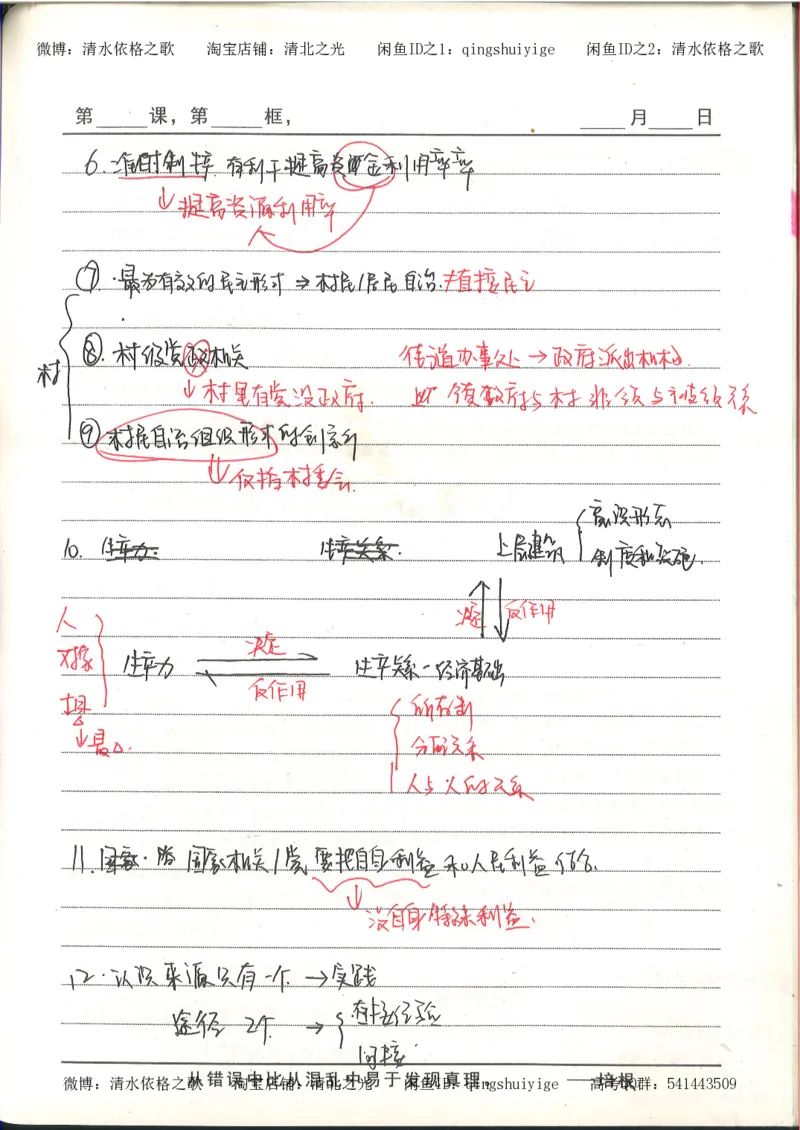 微博：清水依格之歌 淘宝店铺：清北之光 闲鱼ID之1：qingshuiyige 闲鱼ID之2：清水依格之歌
第 课，第 框， 月 日
6. 有利于提高资金利用率
↓提高资源利用率
⑦. 最为有效的民主形式 ⇒ 村民/居民自治. ≠直接民主
村
⑧. 村级党政机关 街道办事处 → 政府派出机构.
↓村里有党没政府. 政府与村非领与被领关系
⑨ 村民自治组织形式的创新
↓仅指村委会.
10. 生产力. 生产关系. 上层建筑 { 意识形态
制度和设施.
决定 反作用
人
对象 生产力 决定 生产关系－经济基础
反作用
工具
↓最△.
所有制
分配关系
人与人的关系
11. 国家机关/党, 要把自身利益和人民利益结合.
↓没自身特殊利益.
12. 认识来源只有一个. → 实践
途径 2个. → { 直接经验
间接
从错误中比从混乱中易于发现真理。 ——培根
微博：清水依格之歌 淘宝店铺：清北之光 闲鱼ID：qingshuiyige 高考QQ群：541443509